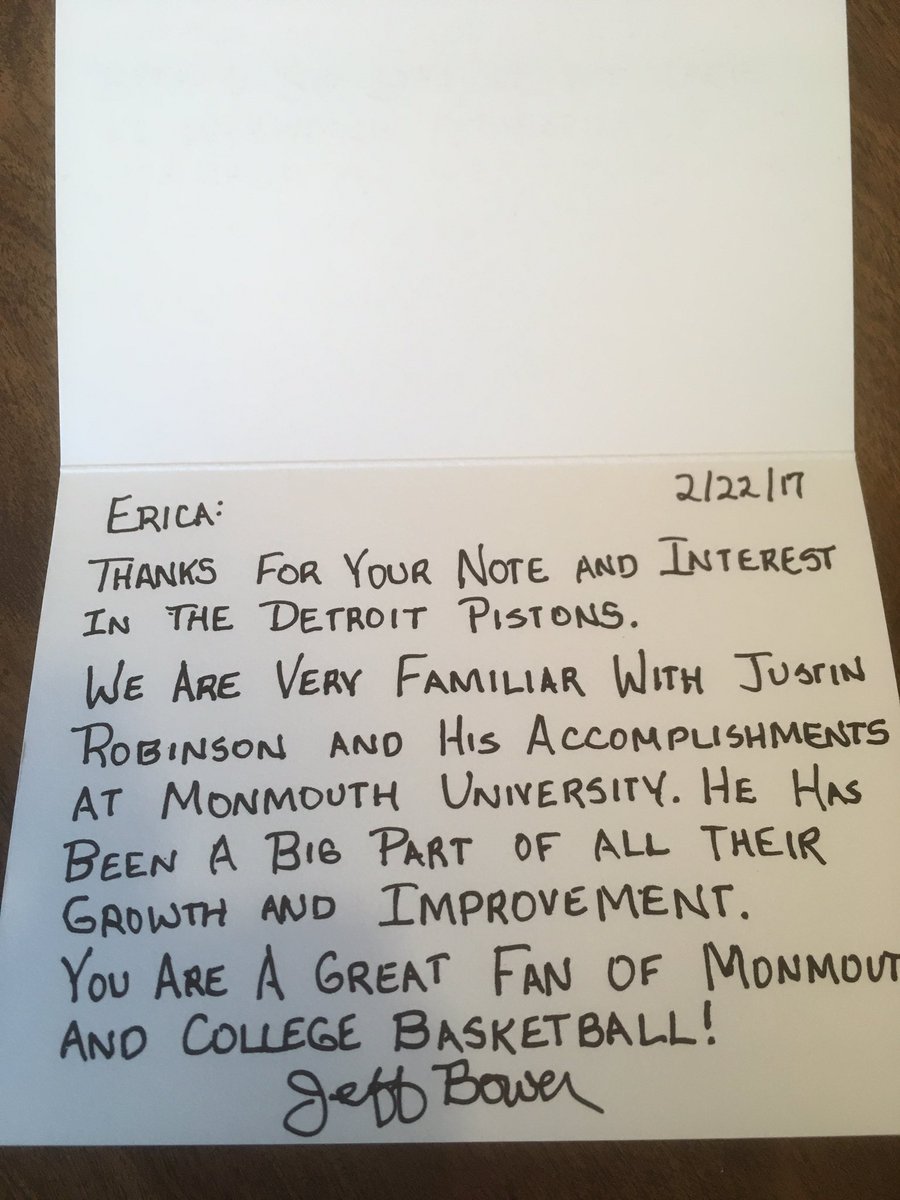 2/22/17
ERICA:
THANKS FOR YOUR NOTE AND INTEREST
IN THE DETROIT PISTONS.
WE ARE VERY FAMILIAR WITH JUSTIN
ROBINSON AND HIS ACCOMPLISHMENTS
AT MONMOUTH UNIVERSITY. HE HAS
BEEN A BIG PART OF ALL THEIR
GROWTH AND IMPROVEMENT.
YOU ARE A GREAT FAN OF MONMOUT
AND COLLEGE BASKETBALL!
Jeff Bower